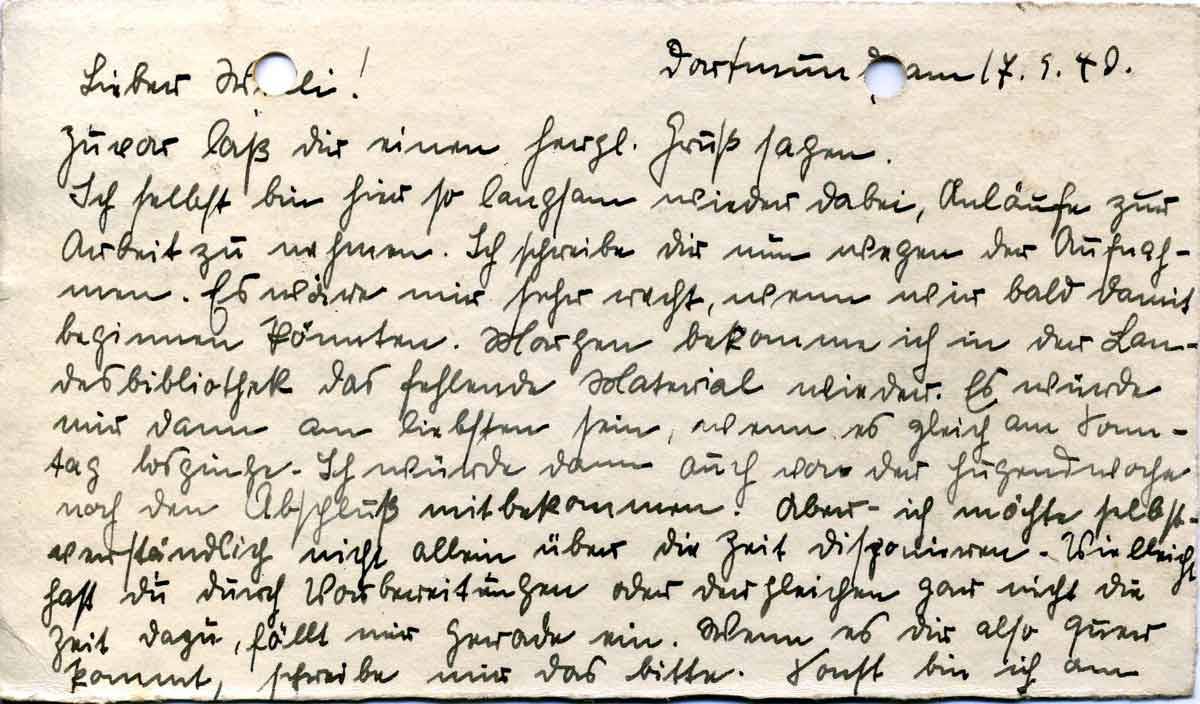 Lieber Willi! Dortmund, am 17. 9. 48.
Zuvor laß dir einen herzl. Gruß sagen.
Ich selbst bin hier so langsam wieder dabei, Anläufe zur
Arbeit zu nehmen. Ich schreibe dir nun wegen der Aufnah-
men. Es wäre mir sehr recht, wenn wir bald damit
beginnen könnten. Morgen bekomme ich in der Lan-
desbibliothek das fehlende Material wieder. Es würde
mir dann am liebsten sein, wenn es gleich am Sonn-
tag losginge. Ich würde dann auch von der Jugendwoche
noch den Abschluß mitbekommen. Aber - ich möchte selbst-
verständlich nicht allein über die Zeit disponieren. Vielleicht
hast du durch Vorbereitungen oder dergleichen gar nicht die
Zeit dazu, fällt mir gerade ein. Wenn es dir also quer
kommt, schreibe mir das bitte. Sonst bin ich am